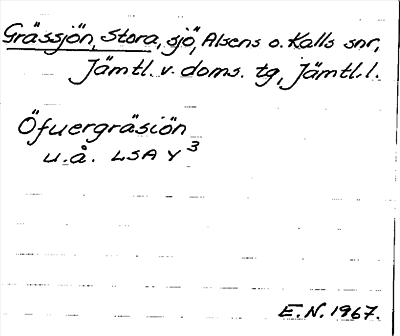 Grässjön, Stora, sjö, Alsens o. Kalls snr,
Jämtl. v. doms. tg, Jämtl. l.
Öfuergräsiön
u.å. LSA Y³
E.N. 1967.